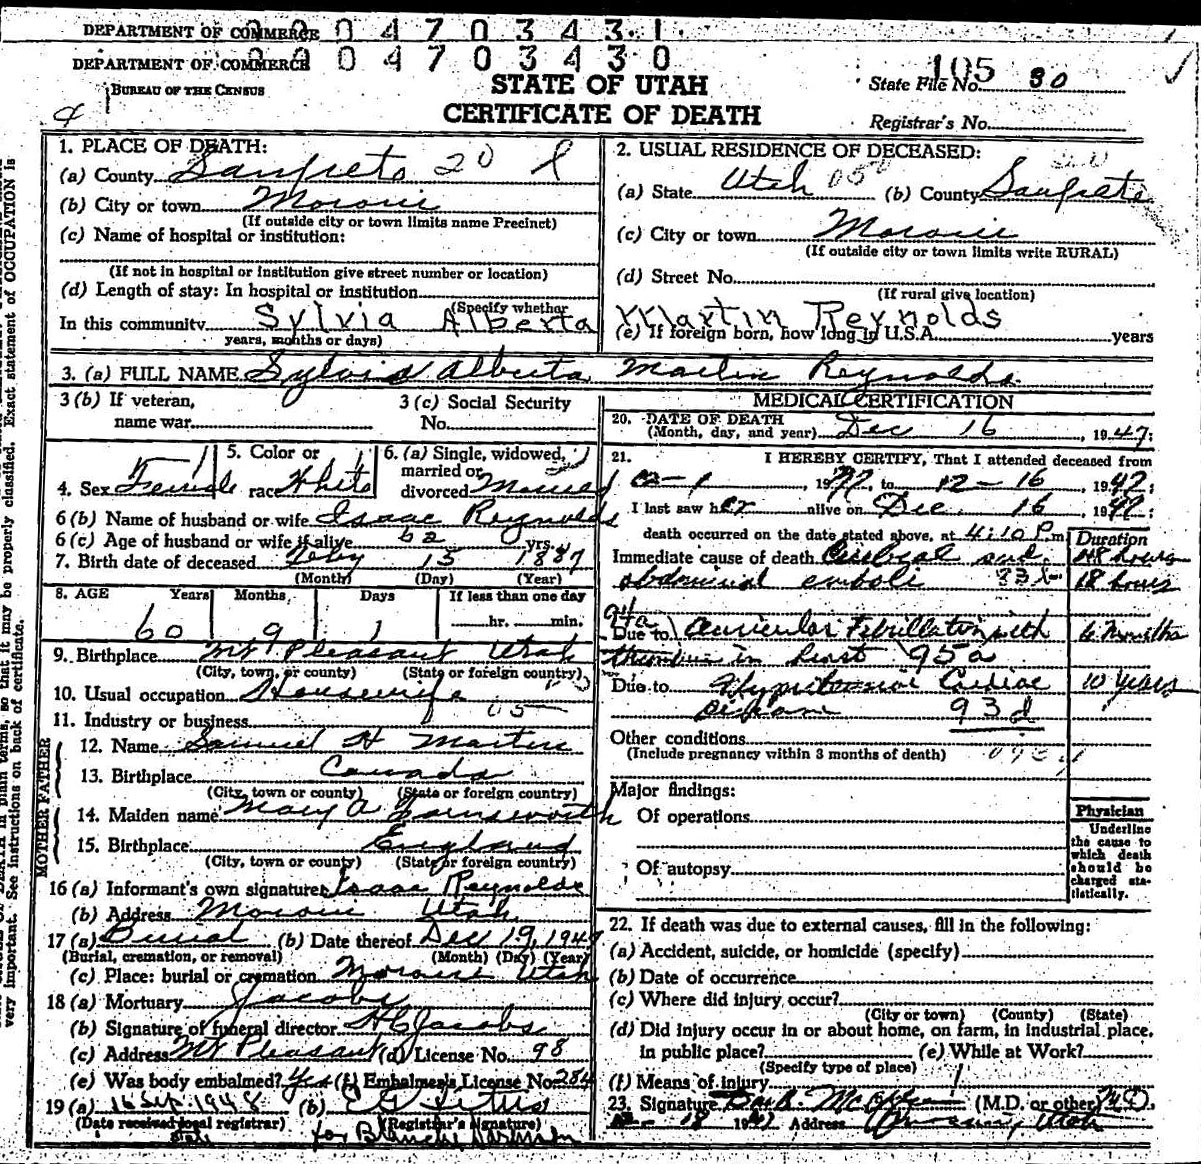 DEPARTMENT OF COMMERCE 0 4 7 0 3 4 3 1
DEPARTMENT OF COMMERCE 0 4 7 0 3 4 3 0
BUREAU OF THE CENSUS
STATE OF UTAH
CERTIFICATE OF DEATH
State File No. 105 80
Registrar's No.
1. PLACE OF DEATH:
(a) County Sanpete 20
(b) City or town Moroni
(If outside city or town limits name Precinct)
(c) Name of hospital or institution:
(If not in hospital or institution give street number or location)
(d) Length of stay: In hospital or institution
(Specify whether
In this community Sylvia Alberta
years, months or days)
2. USUAL RESIDENCE OF DECEASED:
(a) State Utah 050 (b) County Sanpete
(c) City or town Moroni
(If outside city or town limits write RURAL)
(d) Street No.
(If rural give location)
Martin Reynolds
(e) If foreign born, how long in U.S.A. years
3. (a) FULL NAME Sylvia Alberta Martin Reynolds
3 (b) If veteran,
name war
3 (c) Social Security
No.
4. Sex Female
5. Color or
race White
6. (a) Single, widowed,
married or
divorced Married
6 (b) Name of husband or wife Isaac Reynolds
6 (c) Age of husband or wife if alive 62 yrs.
7. Birth date of deceased Feby 15 1887
(Month) (Day) (Year)
8. AGE Years Months Days If less than one day
60 9 1 hr. min.
9. Birthplace Mt Pleasant Utah
(City, town, or county) (State or foreign country)
10. Usual occupation Housewife
11. Industry or business
FATHER
12. Name Samuel H Martin
13. Birthplace Canada
(City, town or county) (State or foreign country)
MOTHER
14. Maiden name Mary A Farnsworth
15. Birthplace England
(City, town or county) (State or foreign country)
16 (a) Informant's own signature Isaac Reynolds
(b) Address Moroni Utah
17 (a) Burial (b) Date thereof Dec 19, 1947
(Burial, cremation, or removal) (Month) (Day) (Year)
(c) Place: burial or cremation Moroni Utah
18 (a) Mortuary Jacobs
(b) Signature of funeral director H C Jacobs
(c) Address Mt Pleasant (d) License No. 98
(e) Was body embalmed? Yes (f) Embalmer's License No. 284
19 (a) 16 Sep. 1948 (b)
(Date received local registrar) (Registrar's signature)
state for Blanche
MEDICAL CERTIFICATION
20. DATE OF DEATH
(Month, day, and year) Dec 16, 1947;
21. I HEREBY CERTIFY, That I attended deceased from
1947, to 12-16, 1947;
I last saw her alive on Dec. 16, 1947;
death occurred on the date stated above, at 4:10 P.m.
Duration
Immediate cause of death Cerebral and 48 hours
abdominal emboli 18 hours
Due to Auricular Fibrillation with 6 Months
thrombus in heart 95a
Due to Hypertensive Cardiac 10 years
Disease 93d
Other conditions
(Include pregnancy within 3 months of death)
Major findings:
Of operations
Of autopsy
Physician
Underline
the cause to
which death
should be
charged sta-
tistically.
22. If death was due to external causes, fill in the following:
(a) Accident, suicide, or homicide (specify)
(b) Date of occurrence
(c) Where did injury occur?
(City or town) (County) (State)
(d) Did injury occur in or about home, on farm, in industrial place,
in public place? (e) While at Work?
(Specify type of place)
(f) Means of injury
23. Signature (M.D. or other) M.D.
18 1947 Address Utah
very important. See instructions on back of certificate.
OF DEATH in plain terms, so that it may be properly classified. Exact statement of OCCUPATION is